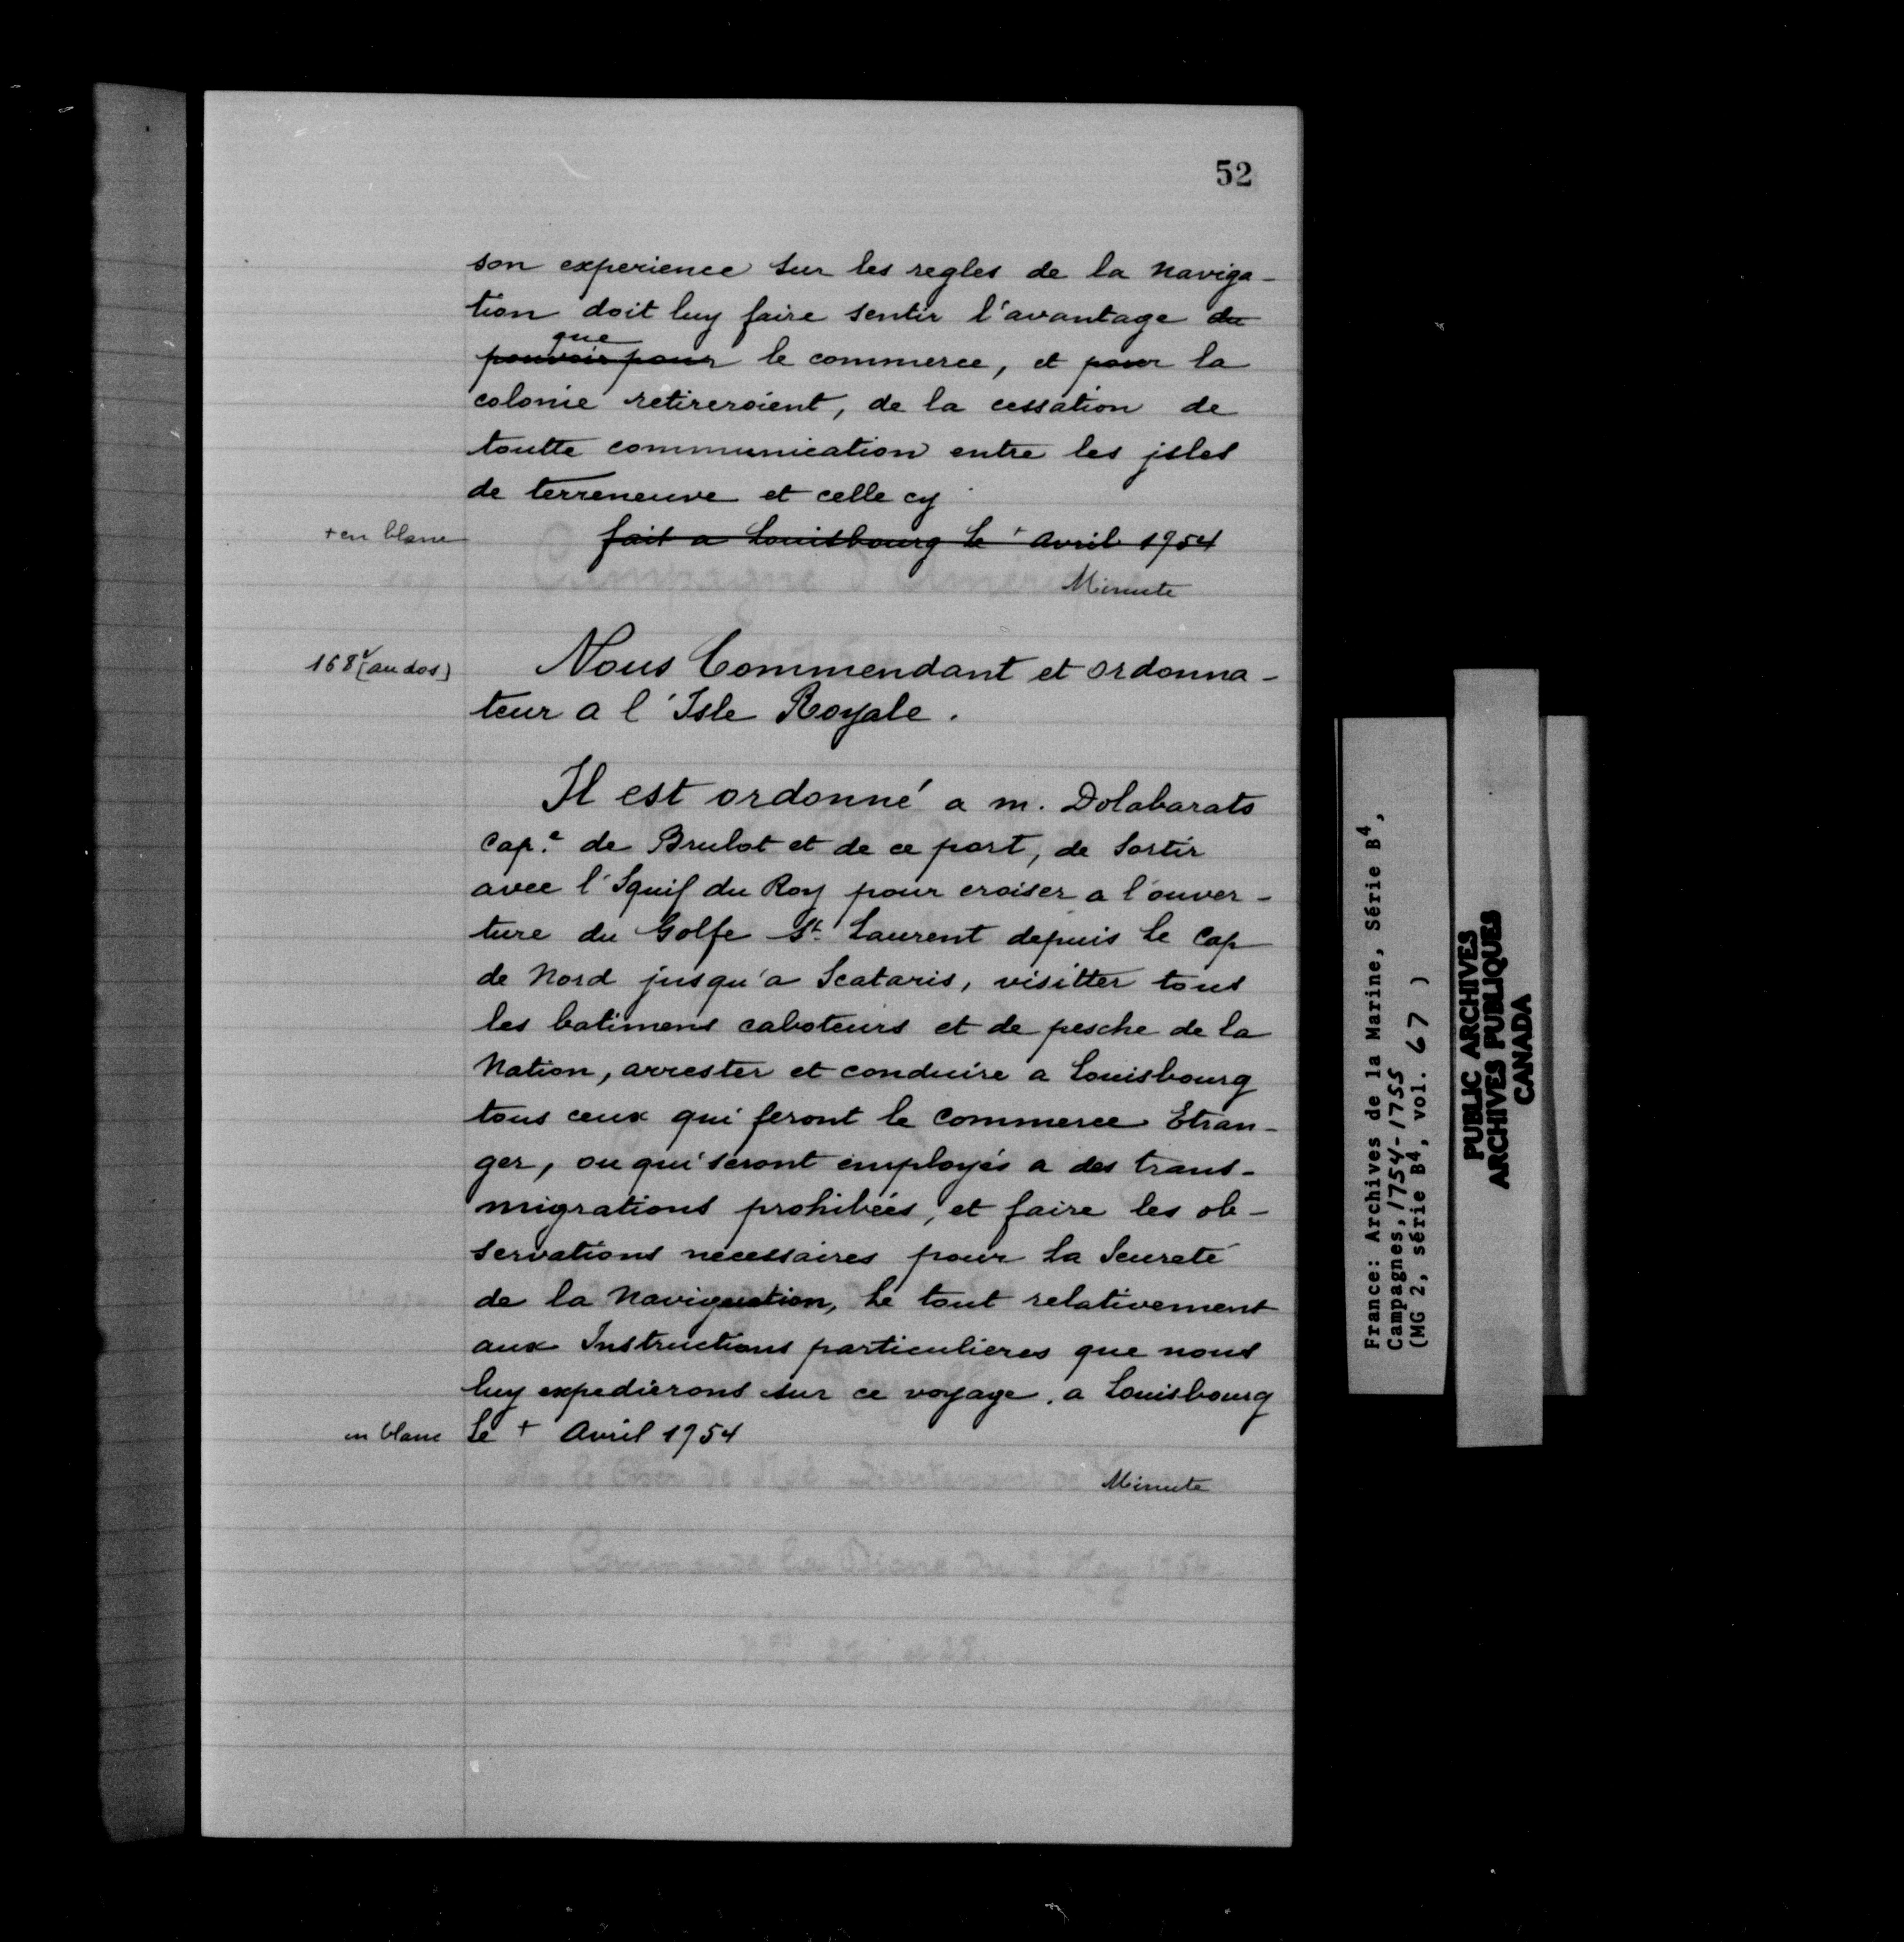 52
son experience sur les regles de la naviga-
tion doit luy faire sentir l'avantage du
que
pouvoir pour le commerce, et pour la
colonie retireroient, de la cessation de
toutte communication entre les jsles
de terreneuve et celle cy
+ en blanc fait a Louisbourg le + avril 1754
Minute
168v [au dos] Nous Commendant et ordonna-
teur a l'Isle Royale.
Il est ordonné a m. Dolabarats
Cap.e de Brulot et de ce port, de sortir
avec l'Squif du Roy pour croiser a l'ouver-
ture du Golfe St. Laurent depuis le Cap
de Nord jusqu'a Scataris, visitter tous
les batimens caboteurs et de pesche de la
Nation, arrester et conduire a Louisbourg
tous ceux qui feront le commerce Etran-
ger, ou qui seront employés a des trans-
migrations prohibées, et faire les ob-
servations necessaires pour la Seureté
de la Naviguation, le tout relativement
aux Instructions particulieres que nous
luy expedierons sur ce voyage. a Louisbourg
en blanc le + Avril 1754
Minute
France: Archives de la Marine, Série B4,
Campagnes, 1754-1755
(MG 2, série B4, vol. 67 )
PUBLIC ARCHIVES
ARCHIVES PUBLIQUES
CANADA